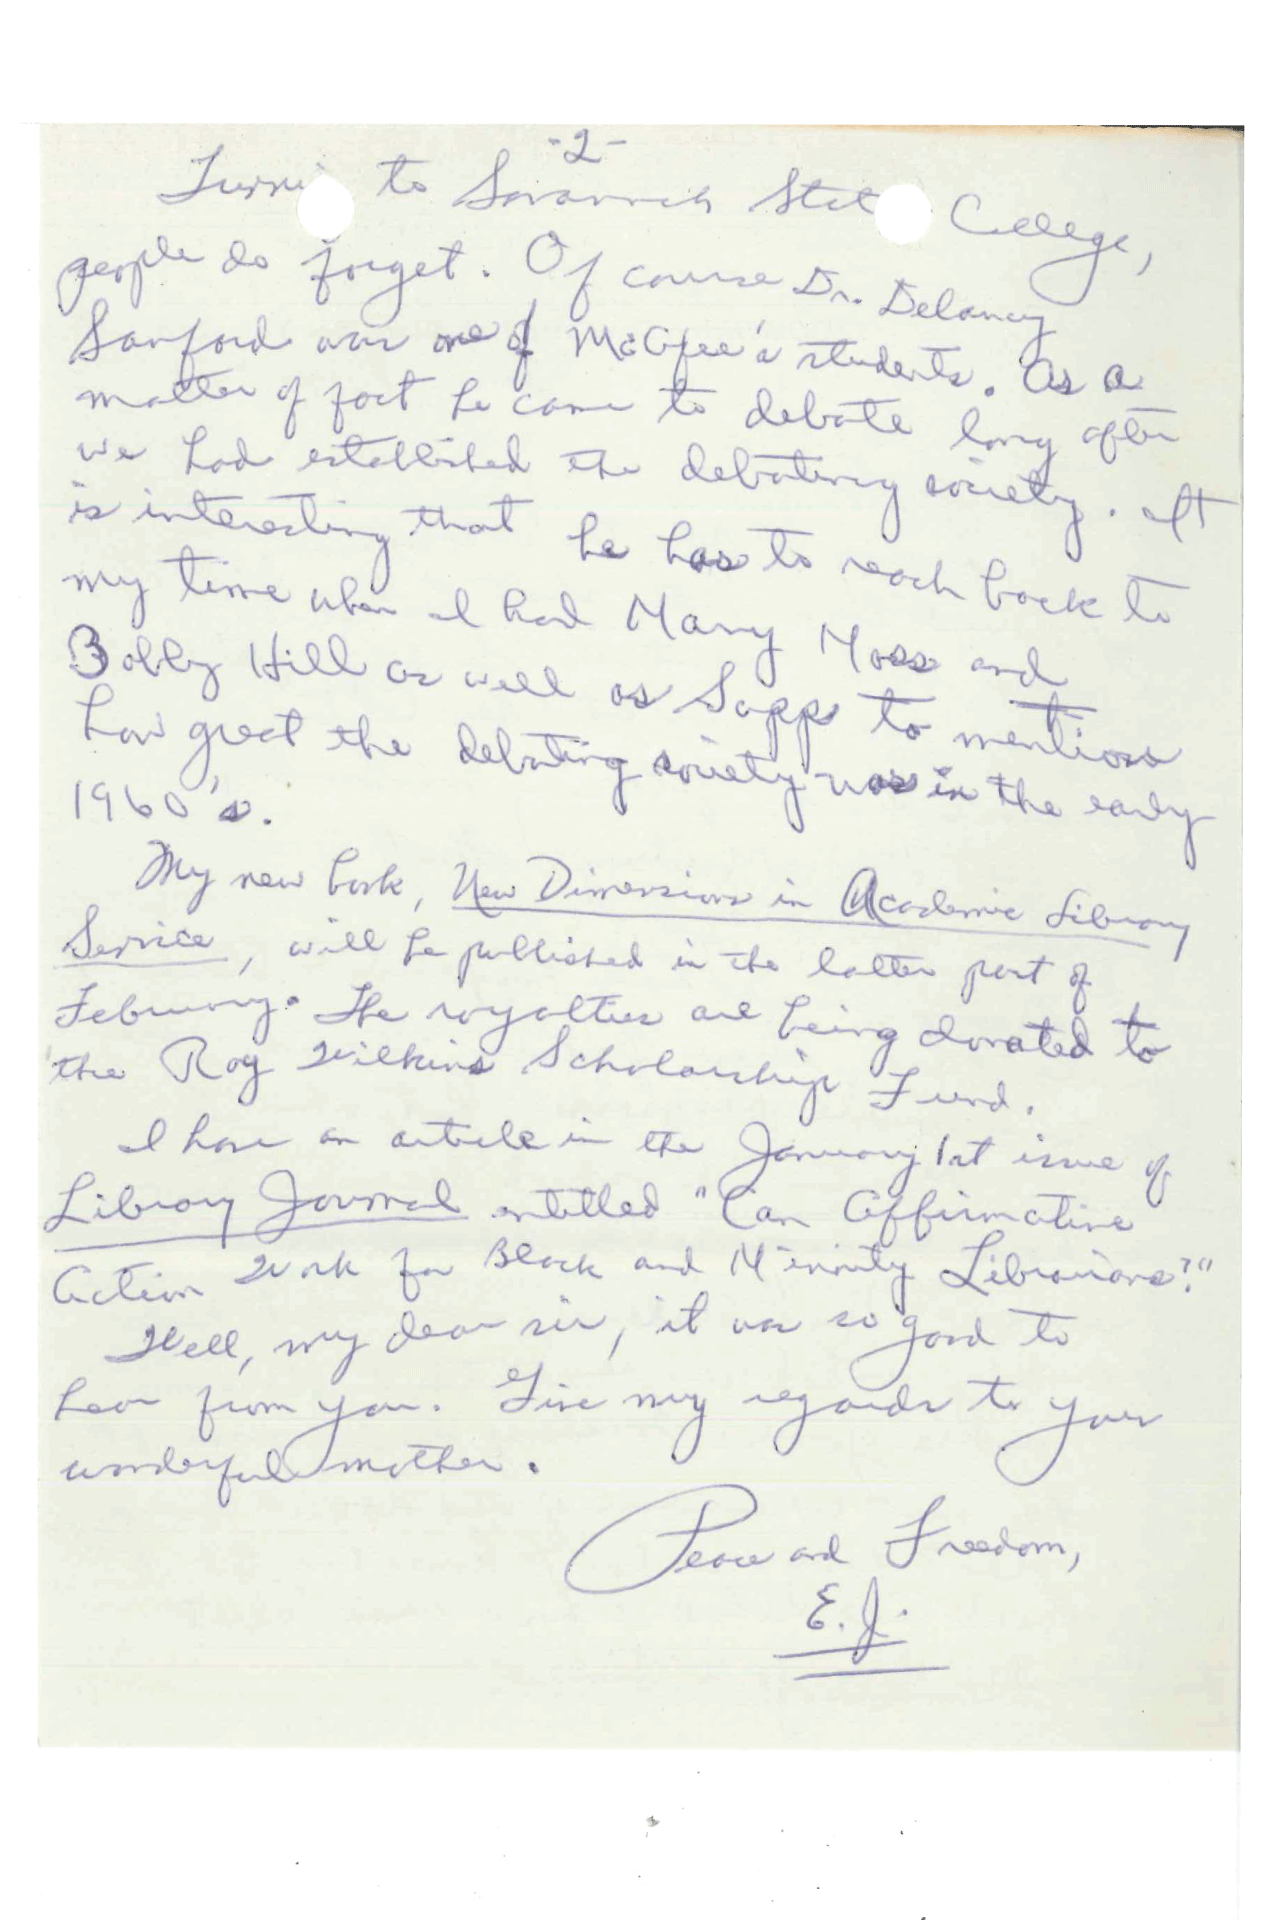 -2-
to Savannah State College,
people do forget. Of course Dr. Delancy
Sanford was one of McAfee's students. As a
matter of fact he came to debate long after
we had established the debating society. It
is interesting that he has to reach back to
my time when I had Mary Moss and
Bobby Hill as well as Sapps to mention
how great the debating society was in the early
1960's.
My new book, New Dimensions in Academic Library
Service, will be published in the latter part of
February. The royalties are being donated to
the Roy Wilkins Scholarship Fund.
I have an article in the January 1st issue of
Library Journal entitled "Can Affirmative
Action Work for Black and Minority Librarians?"
Well, my dear sir, it was so good to
hear from you. Give my regards to your
wonderful mother.
Peace and Freedom,
E.J.